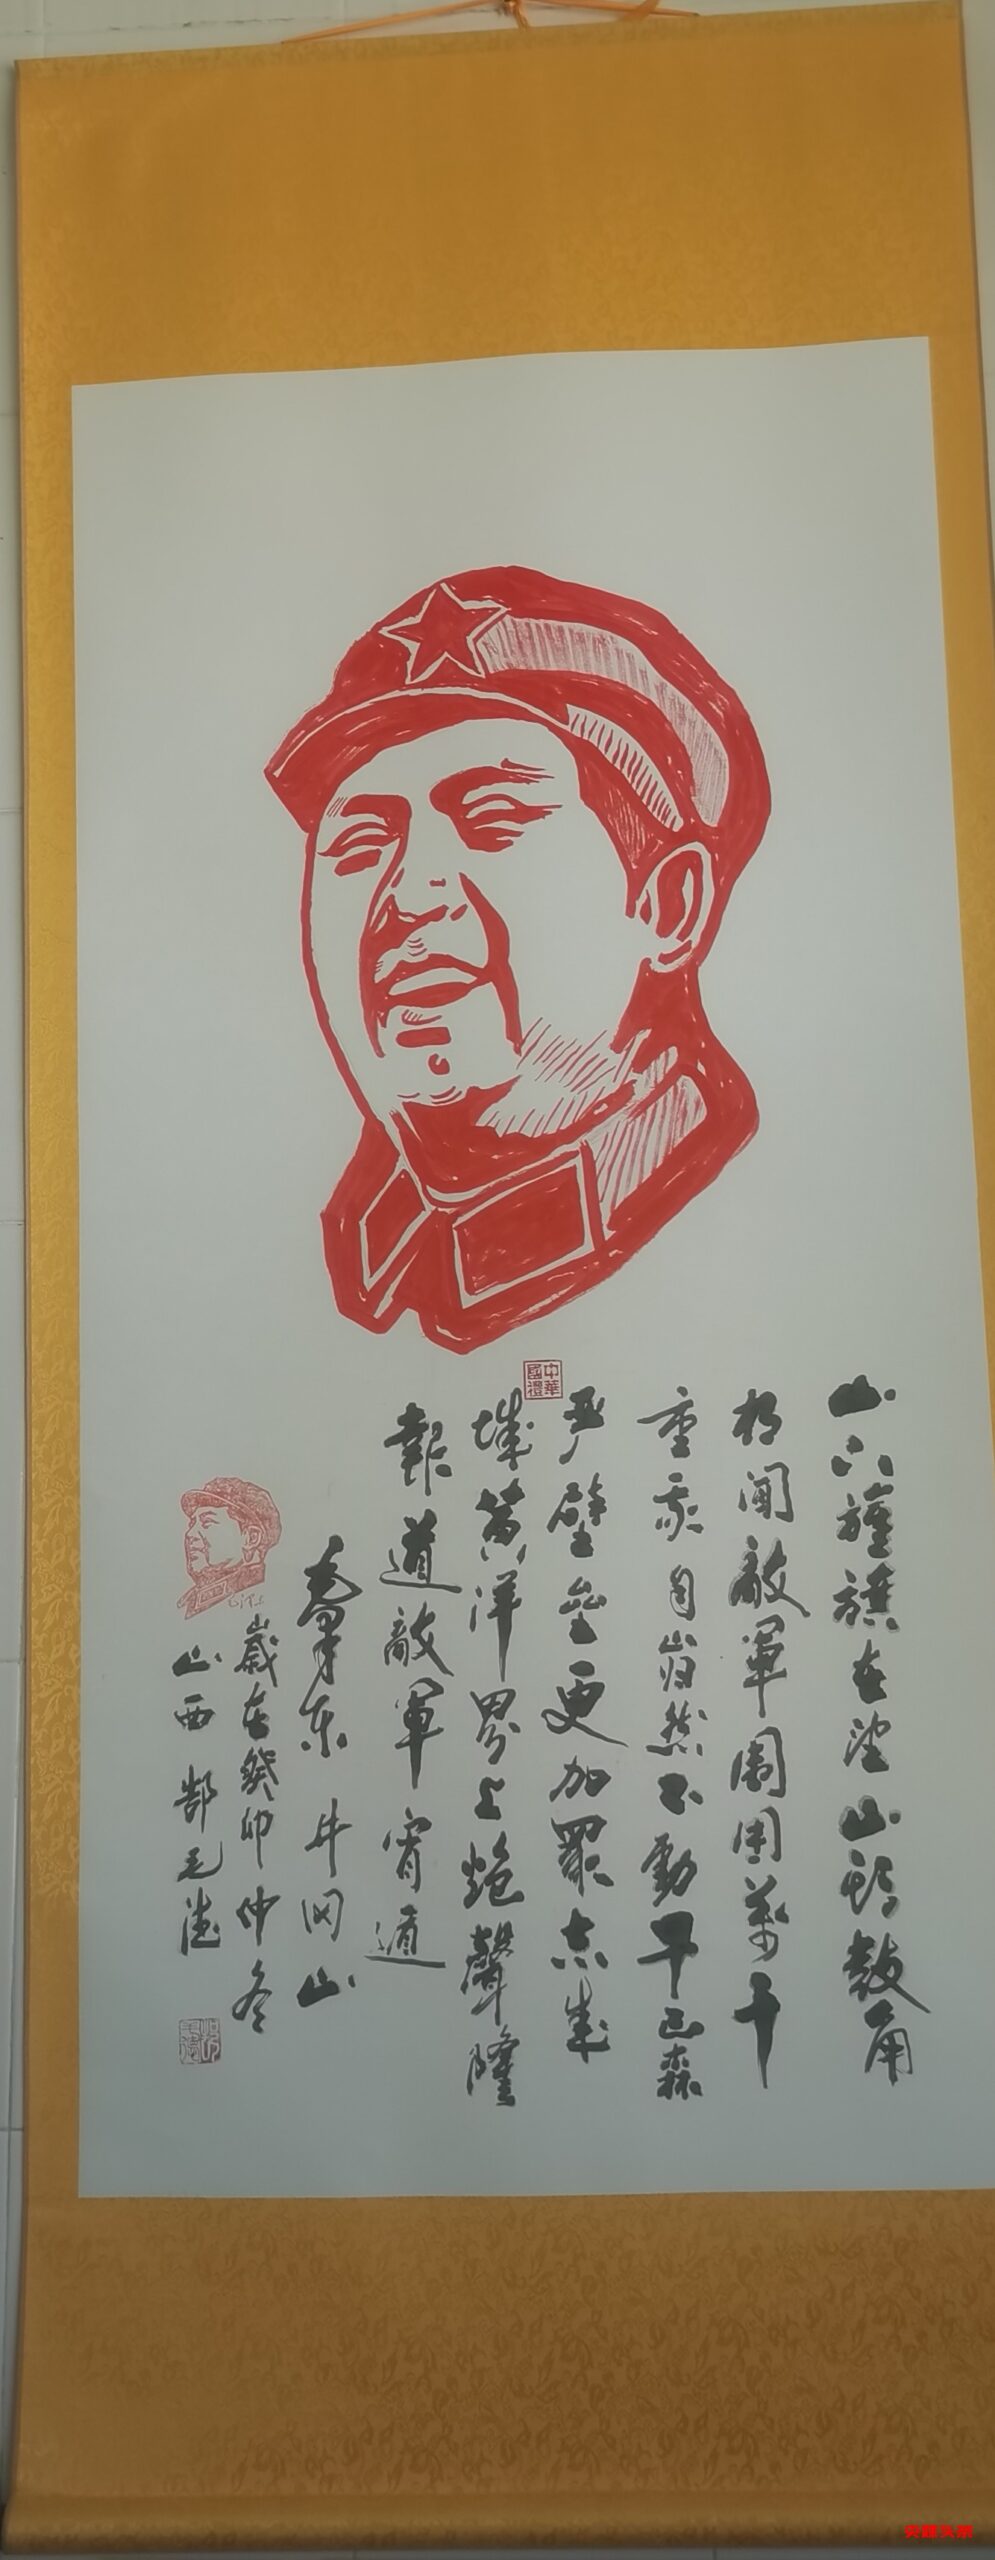 山下旌旗在望山頭鼓角
相闻敵軍圍困萬千
重我自岿然不動早已森
严壁垒更加眾志成
城黄洋界上炮聲隆
報道敵軍宵遁
毛泽东 井冈山
歲在癸卯仲冬
山西郜毛
中華國禮